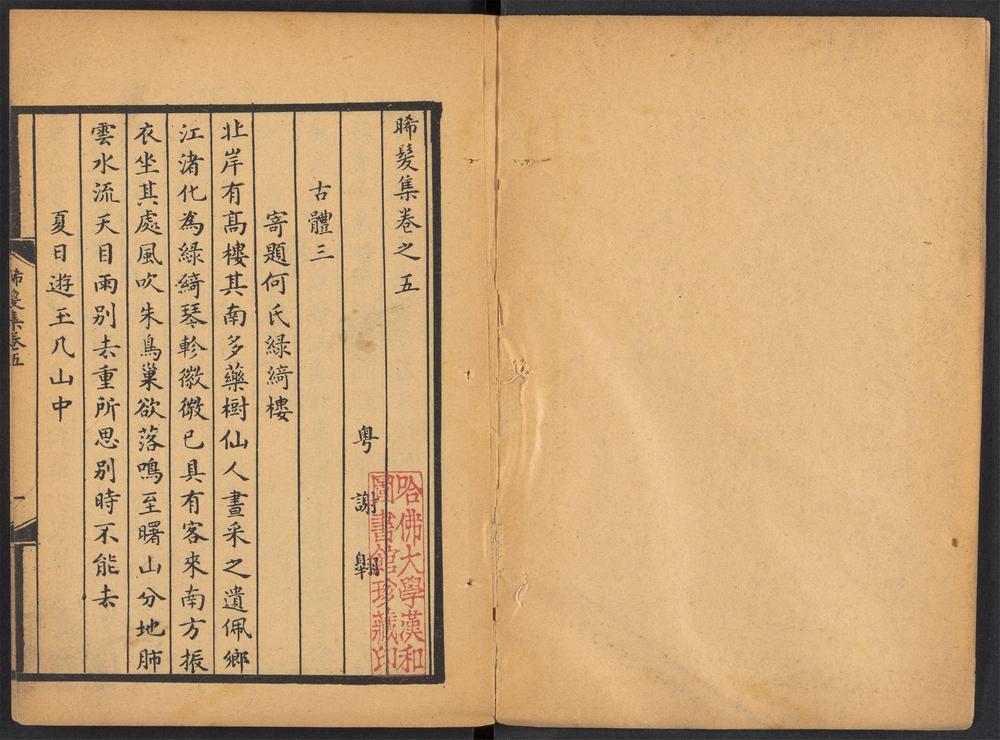 晞髮集卷之五
粵謝翱
古體三
寄題何氏綠綺樓
北岸有高樓其南多藥樹仙人晝采之遺佩鄉
江渚化為綠綺琴軫徽微已具有客來南方振
衣坐其處風吹朱鳥巢欲落鳴至曙山分地肺
雲水流天目雨別去重所思別時不能去
夏日遊王几山中
晞髮集卷五
一
哈佛大學漢和
圖書館珍藏印